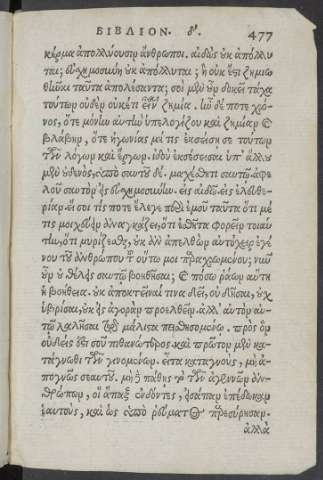 ΒΙΒΛΙΟΝ. δ'. 477
κέρμα ἀπολλύουσιν ἄνθρωποι. αἰδὼς οὐκ ἀπόλλυ
ται; εὐσχημοσύνη οὐκ ἀπόλλυται; ἢ οὐκ ἔστι ζημιω
θῆναι ταῦτα ἀπολέσαντα; σοὶ μὲν οὖν δοκεῖ τάχα
τούτων οὐδὲν οὐκέτι εἶναι ζημία. ἦν δέ ποτε χρό
νος, ὅτε μόνην αὐτὴν ὑπελογίζου καὶ ζημίαν καὶ
βλάβην, ὅτε ἠγωνίας μή τις ἐκσείσῃ σε τούτων
τῶν λόγων καὶ ἔργων. ἰδοὺ ἐκσέσεισαι ὑπ' ἄλλου
μὲν οὐδενὸς, ὑπὸ σαυτοῦ δέ. μαχέσθητι σαυτῷ. ἀφε
λοῦ σαυτὸν εἰς εὐσχημοσύνην. εἰς αἰδῶ. εἰς ἐλευθε
ρίαν. εἴ σοί τίς ποτε ἔλεγε περὶ ἐμοῦ ταῦτα ὅτι μέ
τις μοιχεύειν ἀναγκάζει, ὅτι ἐσθῆτα φορεῖν τοιαύ
την, ὅτι μυρίζεσθαι, οὐκ ἂν ἀπελθὼν αὐτόχειρ ἐγέ
νου τοῦ ἀνθρώπου τοῦ οὕτω μοι παραχρωμένου; νῦν
οὖν οὐ θέλεις σαυτῷ βοηθῆσαι; καὶ πόσῳ ῥᾴων αὕτη
ἡ βοήθεια. οὐκ ἀποκτεῖναί τινα δεῖ, οὐ δῆσαι, οὐχ
ὑβρίσαι, οὐκ εἰς ἀγορὰν προελθεῖν. ἀλλ' αὐτὸν αὑ
τῷ λαλῆσαι τῷ μάλιστα πεισθησομένῳ. πρὸς ὃν
οὐδείς ἐστί σου πιθανώτερος καὶ πρῶτον μὲν κα
τάγνωθι τῶν γενομένων. εἶτα καταγνοὺς, μὴ ἀ
πογνῷς σεαυτοῦ. μὴ πάθῃς τὸ τῶν ἀγεννῶν ἀν
θρώπων, οἳ ἅπαξ ἐνδόντες, εἰσάπαν ἐπέδωκαν
ἑαυτοὺς, καὶ ὡς ὑπὸ ῥεύματος παρεσύρησαν.
ἀλλὰ